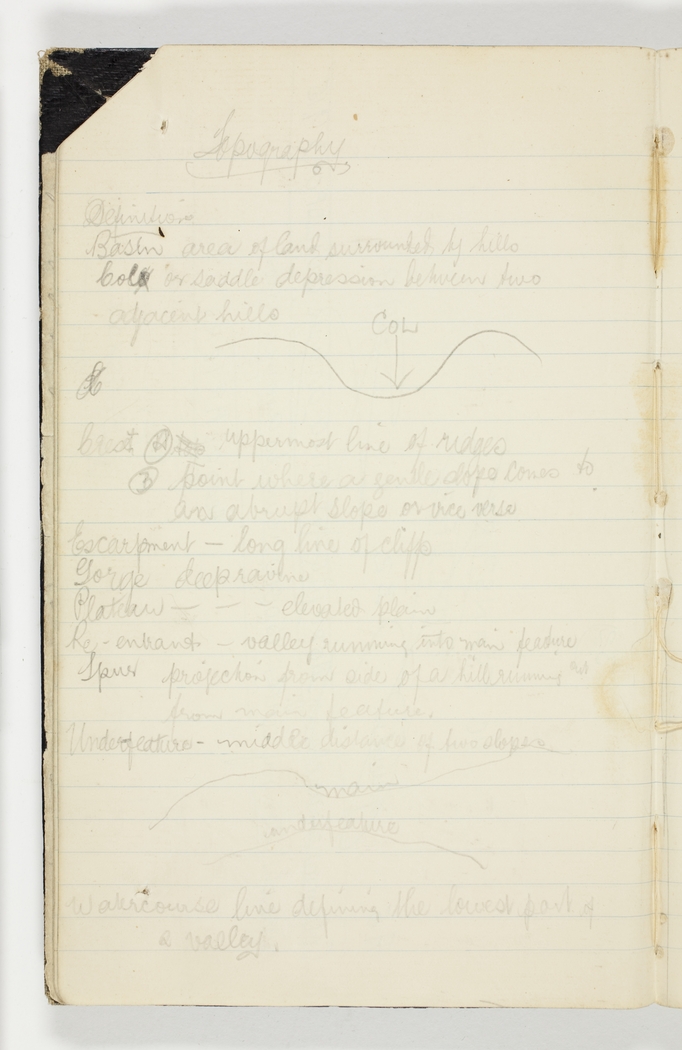 Topography
Definitions
Basin area of land surrounded by hills
Col or saddle depression between two
adjacent hills
COL
Crest (1) uppermost line of ridges
(2) point where a gentle slope comes to
an abrupt slope or vice versa
Escarpment — long line of cliffs
Gorge deep ravine
Plateau — — - elevated plain
Re-entrant — valley running into main feature
Spur projection from side of a hill running out
from main feature.
Underfeature - middle distance of two slopes
main
underfeature
Watercourse line defining the lowest part of
a valley.